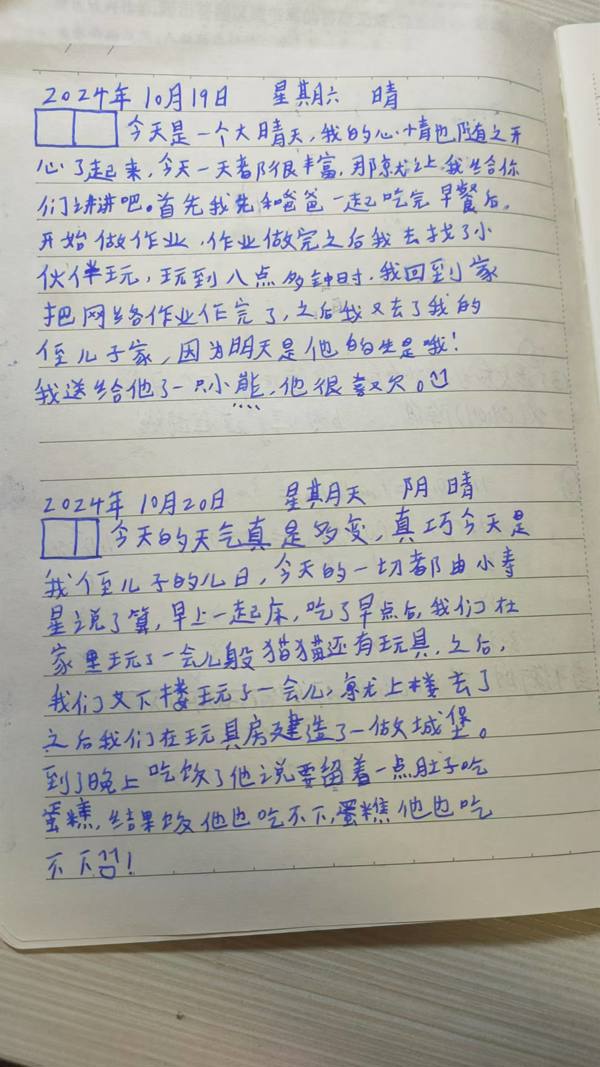 2024年10月19日 星期六 晴
今天是一个大晴天,我的心情也随之开
心了起来,今天一天都很丰富,那就让我给你
们讲讲吧。首先我先和爸爸一起吃完早餐后,
开始做作业,作业做完之后我去找了小
伙伴玩,玩到八点多钟时,我回到家
把网络作业作完了,之后我又去了我的
侄儿子家,因为明天是他的生是哦!
我送给他了一只小熊,他很喜欢。
2024年10月20日 星期天 阴 晴
今天的天气真是多变,真巧今天是
我侄儿子的儿日,今天的一切都由小寿
星说了算,早上一起床,吃了早点后,我们在
家里玩了一会儿躲猫猫还有玩具,之后,
我们又下楼玩了一会儿,就上楼去了
之后我们在玩具房建造了一做城堡。
到了晚上吃饮了他说要留着一点肚子吃
蛋糕,结果饭他也吃不下,蛋糕他也吃
不下!